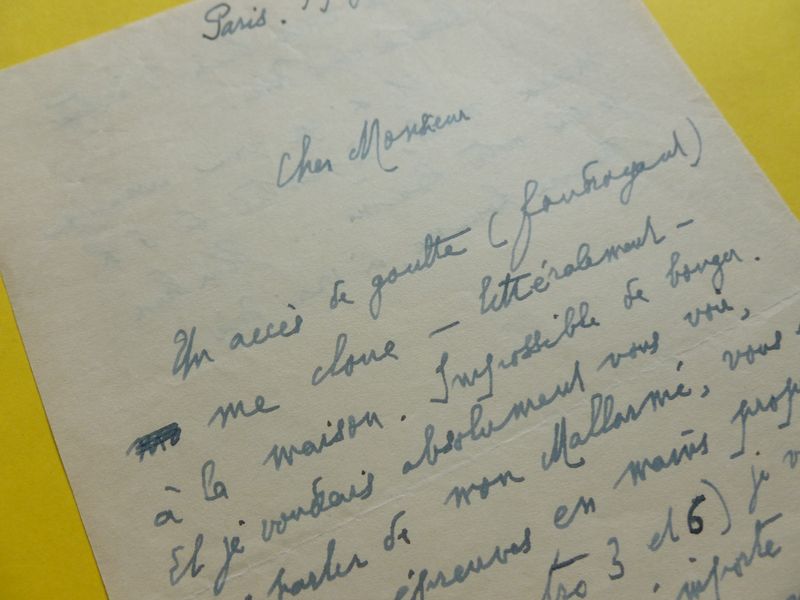 Paris.
Cher Monsieur
Un accès de goutte (foudroyant)
me cloue — littéralement —
à la maison. Impossible de bouger.
Et je voudrais absolument vous voir,
parler de mon Mallarmé, vous
épreuves en mains
3 et 6) je
importe